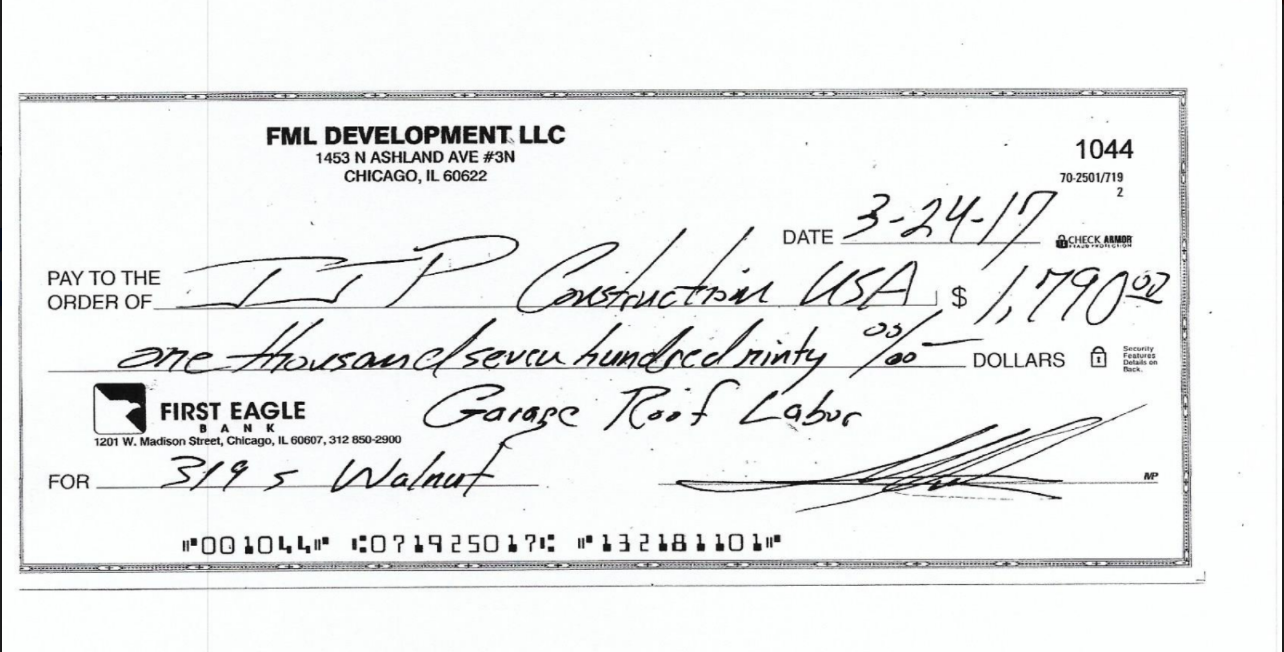 FML DEVELOPMENT LLC
1453 N ASHLAND AVE #3N
CHICAGO, IL 60622
1044
70-2501/719
2
DATE 3-24-17
CHECK ARMOR
FRAUD PROTECTION
PAY TO THE
ORDER OF Construction USA $ 1,790 00
one thousand seven hundred ninty 00/00 DOLLARS
Security
Features
Details on
Back.
FIRST EAGLE
BANK
1201 W. Madison Street, Chicago, IL 60607, 312 850-2900
Garage Roof Labor
FOR 319 S Walnut
MP
⑈001044⑈ ⑆071925017⑆ ⑈132181101⑈